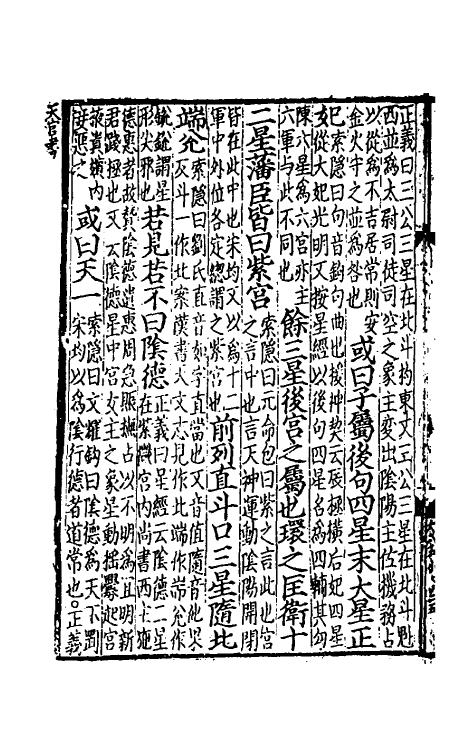 正義曰三公三星在北斗杓東又三公三星在北斗魁
西並為太尉司徒司空之象主變出陰陽主佐機務占
以徙為不吉居常則安
金火守之並為咎也
或曰子屬後句四星末大星正
妃
索隱曰句音鉤句曲也援神契云辰極橫后妃四星
從大妃光明又按星經以後句四星名為四輔其句
陳六星為六宮亦主
六軍與此不同也
餘三星後宮之屬也環之匡衛十
二星藩臣皆曰紫宮
索隱曰元命包曰紫之言此也宮
之言中也言天神運動陰陽開閉
皆在此中也宋均又以為十二
軍中外位各定總謂之紫宮也
前列直斗口三星隨北
端兌
索隱曰劉氏直音如字直當也又音值隨音他果
反斗一作北案漢書天文志見作比端作耑兌作
銳銳謂星
形尖邪也
若見若不曰陰德
正義曰星經云陰德二星
在紫微宮內尚書西主施
德惠者故贊陰德遺惠周急賑撫占以不明為宜明新
君踐極也又云陰德星中宮女主之象星動搖釁起宮
掖貴嬪內
妾惡之
或曰天一
索隱曰文耀鉤曰陰德為天下綱
宋均以為陰行德者道常也○正義
天官書